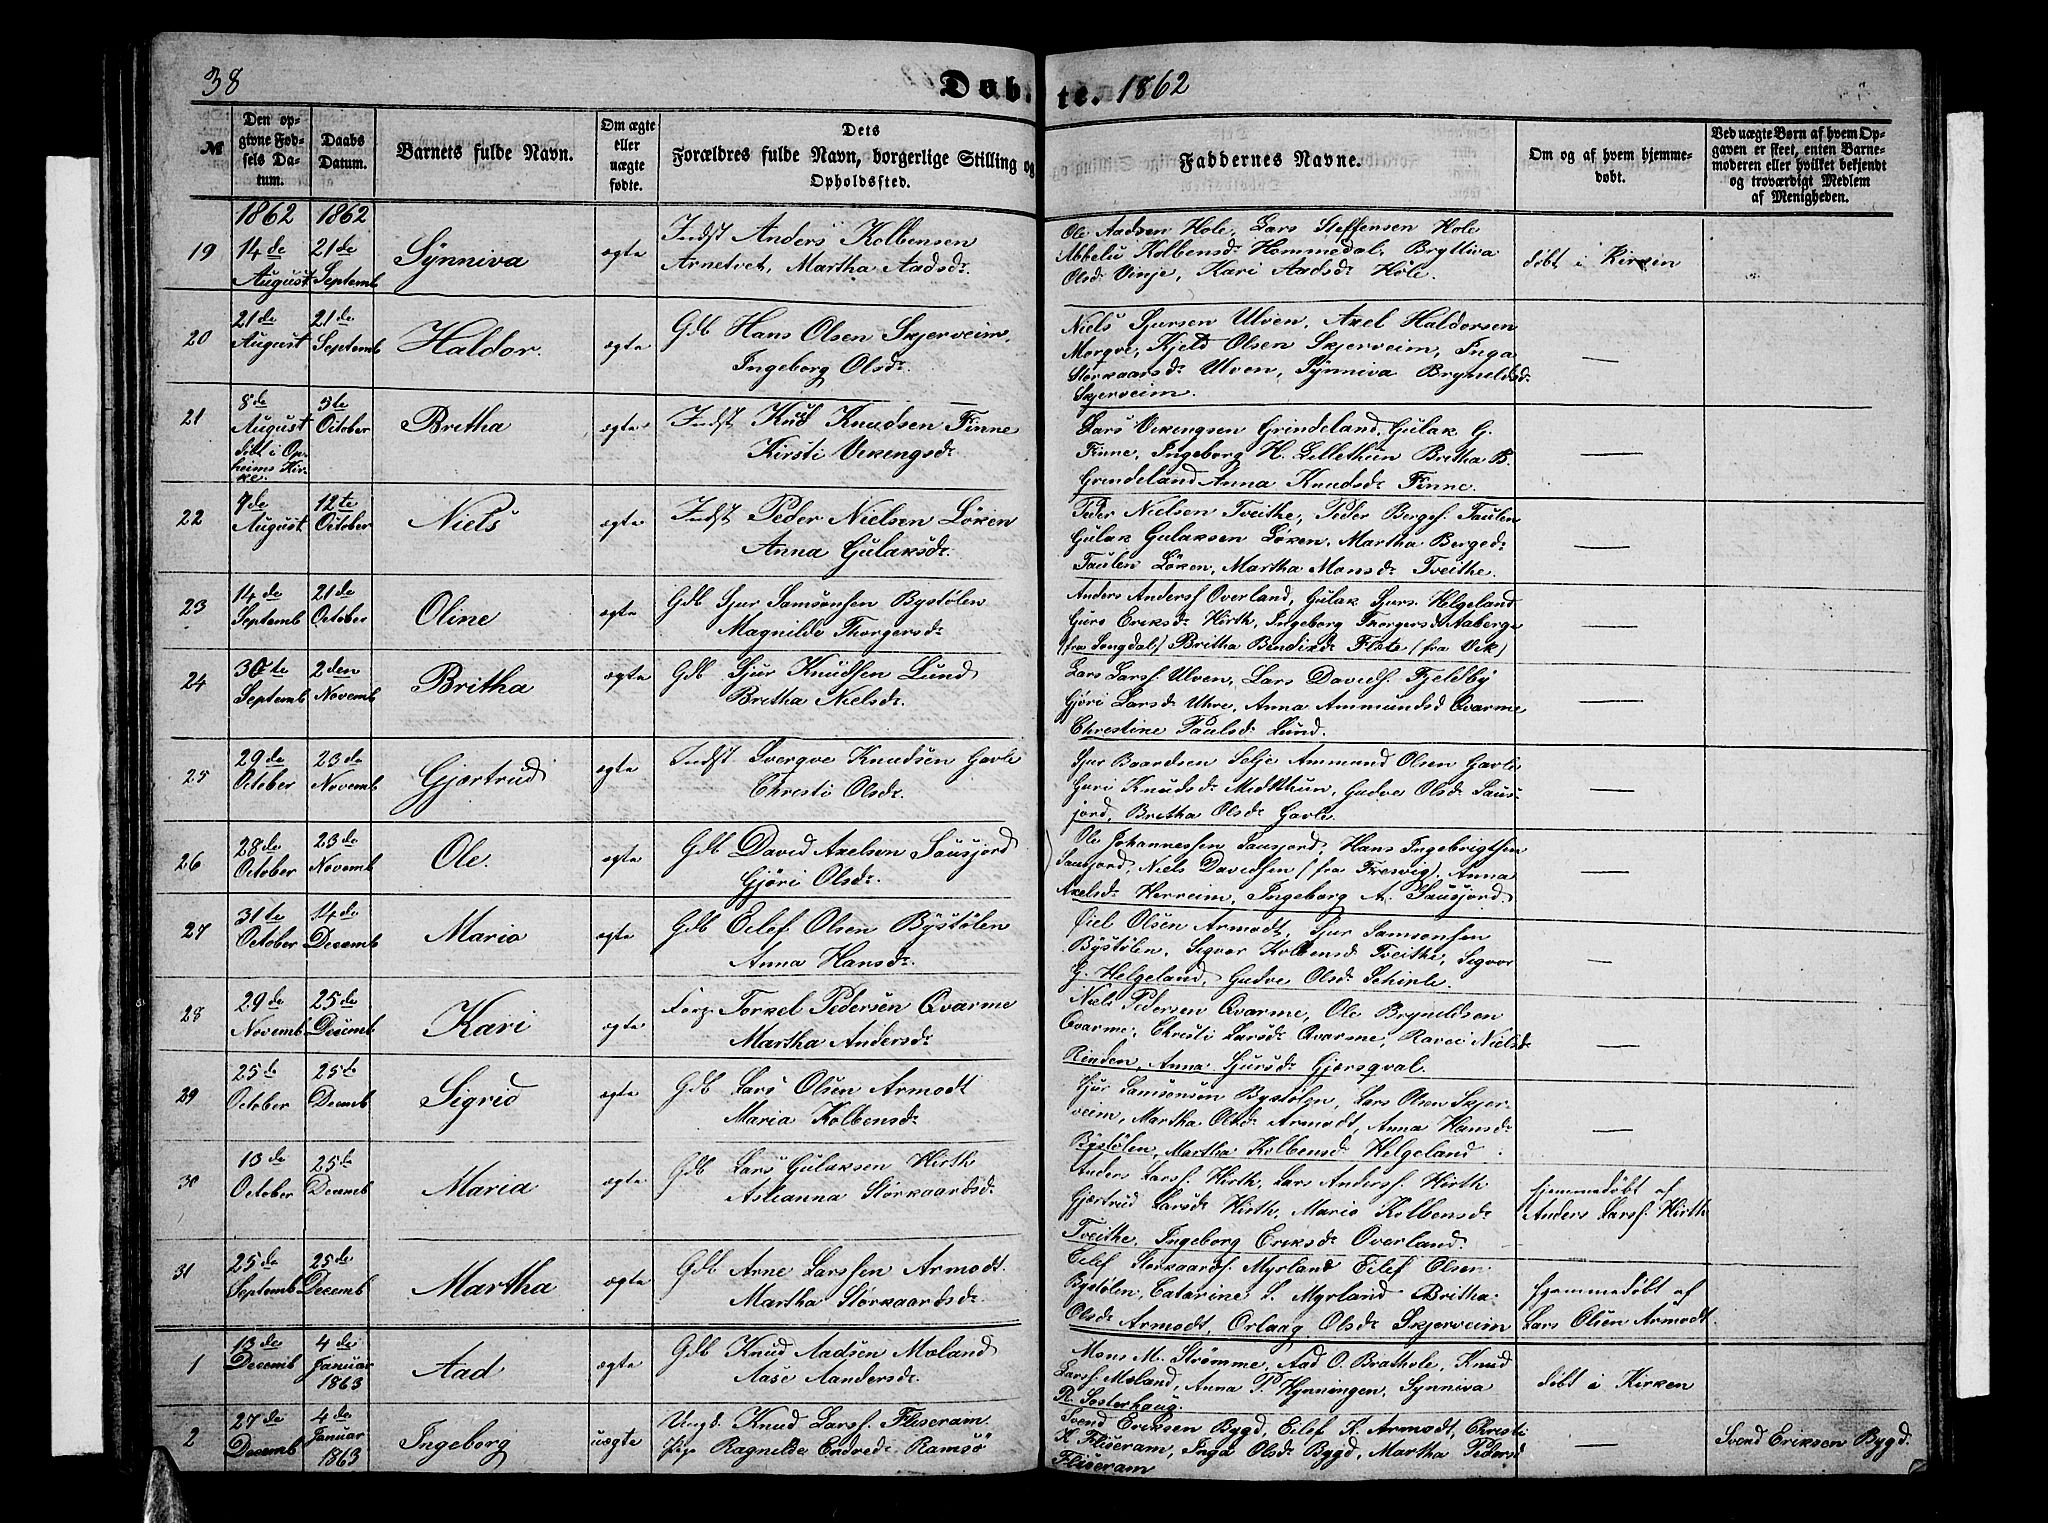 38
Døbte. 1862
№
Den op-
givne Fød-
sels Da-
tum.
Daabs
Datum.
Barnets fulde Navn.
Om ægte
eller
uægte
fødte.
Dets
Forældres fulde Navn, borgerlige Stilling og
Opholdssted.
Faddernes Navne.
Om og af hvem hjemme-
døbt.
Ved uægte Børn af hvem Op-
gaven er skeet, enten Barne-
moderen eller hvilket bekjendt
og troværdigt Medlem
af Menigheden.
1862 1862
19
14de
August
21de
Septemb
Synniva
ægte
Indst Anders Kolbensen
Arnetvet, Martha Aadsdr.
Ole Aadsen Hole, Lars Steffensen Hole
Abbelu Kolbensdr Hommedal, Bryttiva
Olsdr Vinje, Kari Aadsdr Hole.
døbt i Kirken
20
21de
August
21de
Septemb
Haldor.
ægte
Gdb Hans Olsen Skjerveim,
Ingeborg Olsdr.
Niels Sjursen Ulven, Axel Haldorsen
Morqve, Kjeld Olsen Skjerveim, Inga
Storkaarsdr Ulven, Synniva Bryneldsdr
Skjerveim.
—
21
8de
August
døbt i Op-
heims Kir-
ke.
5te
October
Britha
ægte
Indst Knud Knudsen Finne
Kirsti Vikengsdr.
Lars Vikengsen Grindeland, Gulak G.
Finne, Ingeborg H. Lillethun Britha B.
Grindeland Anna Knudsdr Finne.
—
22
7de
August
12te
October
Niels
ægte
Indst Peder Nielsen Løken
Anna Gulaksdr.
Peder Nielsen Tveithe, Peder Bergesf. Taulen
Gulak Gulaksen Løken, Martha Bergesdr
Taulen Løken, Martha Monsdr Tveithe.
—
23
14de
Septemb
21de
October
Oline
ægte
Gdb Sjur Samsonsen Bystølen
Magnilde Thorgersdr.
Anders Andersf Overland, Gulak Sjurs. Helgeland
Guro Eriksdr Hirth, Ingeborg Thorgersdr Aaberge
(fra Songdal) Britha Bendixdr Fløte (fra Vik)
—
24
30te
Septemb
2den
Novemb
Britha
ægte
Gdb Sjur Knudsen Lund
Britha Nielsdr.
Lars Larsf. Ulven, Lars Davidsf Fjeldby
Gjøri Larsdr Uhre, Anna Ammundsd Qvarme
Christine Paulsdr Lund.
—
25
29de
October
23de
Novemb
Gjertrud
ægte
Indst Sverqve Knudsen Gavle
Christi Olsdr.
Sjur Baardsen Selje Ammund Olsen Gavle
Guri Knudsdr Midtthun, Gudve Olsdr Saus-
jord, Britha Olsdr Gavle.
—
26
28de
October
23de
Novemb
Ole.
ægte
Gdb David Axelsen Sausjord
Gjøri Olsdr.
Ole Johannessen Sausjord, Hans Ingebrigtsen
Sausjord, Niels Davidsen (fra Fresvig), Anna
Axelsdr Herreim, Ingeborg A. Sausjord.
27
31te
October
14de
Decemb
Maria
ægte
Gdb Eilef Olsen Bystølen
Anna Hansdr.
Øiel Olsen Armodt, Sjur Samsonsen
Bystølen, Sigvor Kolbensd Tveithe, Sigvor
G. Helgeland, Gudve Olsdr Schirle.
—
28
29de
Novemb
25de
Decemb
Kari
ægte
Forp. Torkel Pedersen Qvarme
Martha Andersdr.
Niels Pedersen Qvarme, Ole Bryneldsen
Qvarme, Christi Larsdr Qvarme, Nielsdr
Renden, Anna Sjursdr Gjersqval.
—
29
25de
October
25de
Decemb
Sigrid
ægte
Gdb Lars Olsen Armodt
Maria Kolbensdr.
Sjur Samsonsen Bystølen, Lars Olsen Skjer-
veim, Martha Olsdr Armodt, Anna Hansdr
Bystølen, Martha Kolbensdr Helgeland.
—
30
13de
October
25de
Decemb
Maria
ægte
Gdb Lars Gulaksen Hirth
Aslianna Storkaardsdr.
Anders Larsf. Hirth, Lars Andersf. Hirth
Gjertrud Larsdr Hirth, Maria Kolbensdr
Tveithe, Ingeborg Eriksdr Overland.
hjemmedøbt af
Anders Larsf. Hirth
31
25de
Septemb
25de
Decemb
Martha
ægte
Gdb Arne Larssen Armodt
Martha Storkaardsdr.
Eilef Storkaardsf. Myrland Eilef Olsen
Bystølen, Catarine L. Myrland Britha
Olsdr Armodt, Orlaag Olsdr Skjerveim
hjemmedøbt af
Lars Olsen Armodt.
1
13de
Decemb
4de
Januar
1863
Aad
ægte
Gdb Knud Aadsen Moland
Aase Aandersdr.
Mons M. Strømme, Aad O. Brathole, Knud
Larsf. Moland, Anna P. Hynningen, Synniva
R. Sosterhaug.
døbt i Kirken
2
27de
Decemb
4de
Januar
1863
Ingeborg
uægte
Ungk. Knud Larsf. Fliseram
Pige Ragnilde Endvedr. Ramsø
Svend Eriksen Bygd, Eilef K. Armodt, Christi
K. Fliseram, Inga Olsdr Bygd, Martha Pedersd
Fliseram
—
Svend Eriksen Bygd.